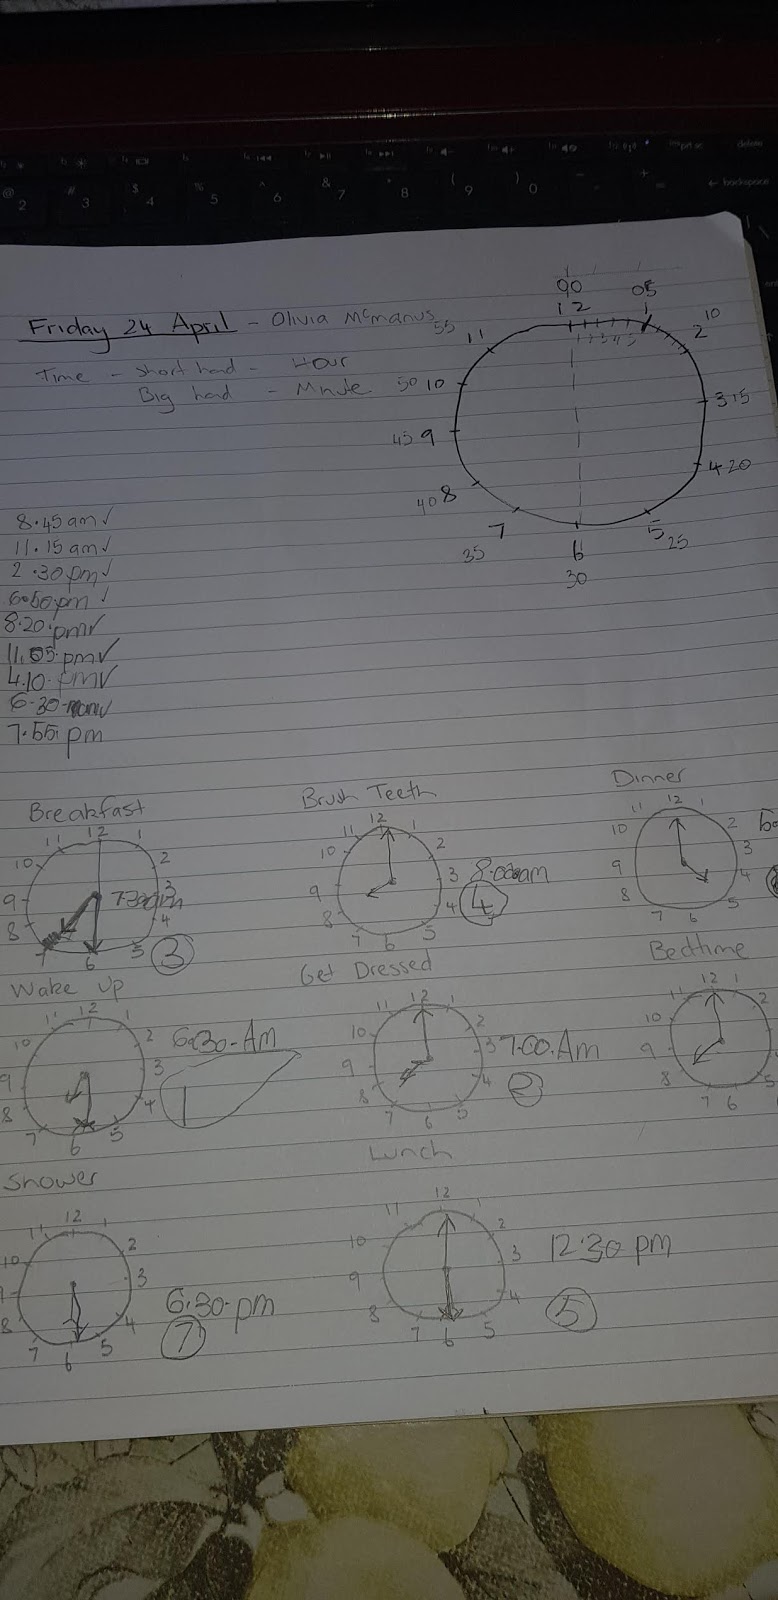 Friday 24 April - Olivia McManus
Time - Short hand - Hour
Big hand - Minute
00 05
12 1 10
55 11 2
1 2 3 4 5
50 10 3 15
45 9 4 20
40 8 5 25
35 7 6
30
8.45am ✓
11.15am ✓
2.30pm ✓
6.50pm ✓
8.20.pm ✓
11.05.pm ✓
4.10.pm ✓
6.30 ✓
7.55.pm
Breakfast
12 1 2 3 4 5 6 7 8 9 10 11
3
Brush Teeth
12 1 2 3 4 5 6 7 8 9 10 11
8.00am
4
Dinner
12 1 2 3 4 5 6 7 8 9 10 11
Wake Up
12 1 2 3 4 5 6 7 8 9 10 11
6.30.Am
1
Get Dressed
12 1 2 3 4 5 6 7 8 9 10 11
7.00.Am
2
Bedtime
12 1 2 5 6 7 8 9 10 11
Shower
12 1 2 3 4 5 6 7 8 9 10 11
6.30.pm
7
Lunch
12 1 2 3 4 5 6 7 8 9 10 11
12.30 pm
5